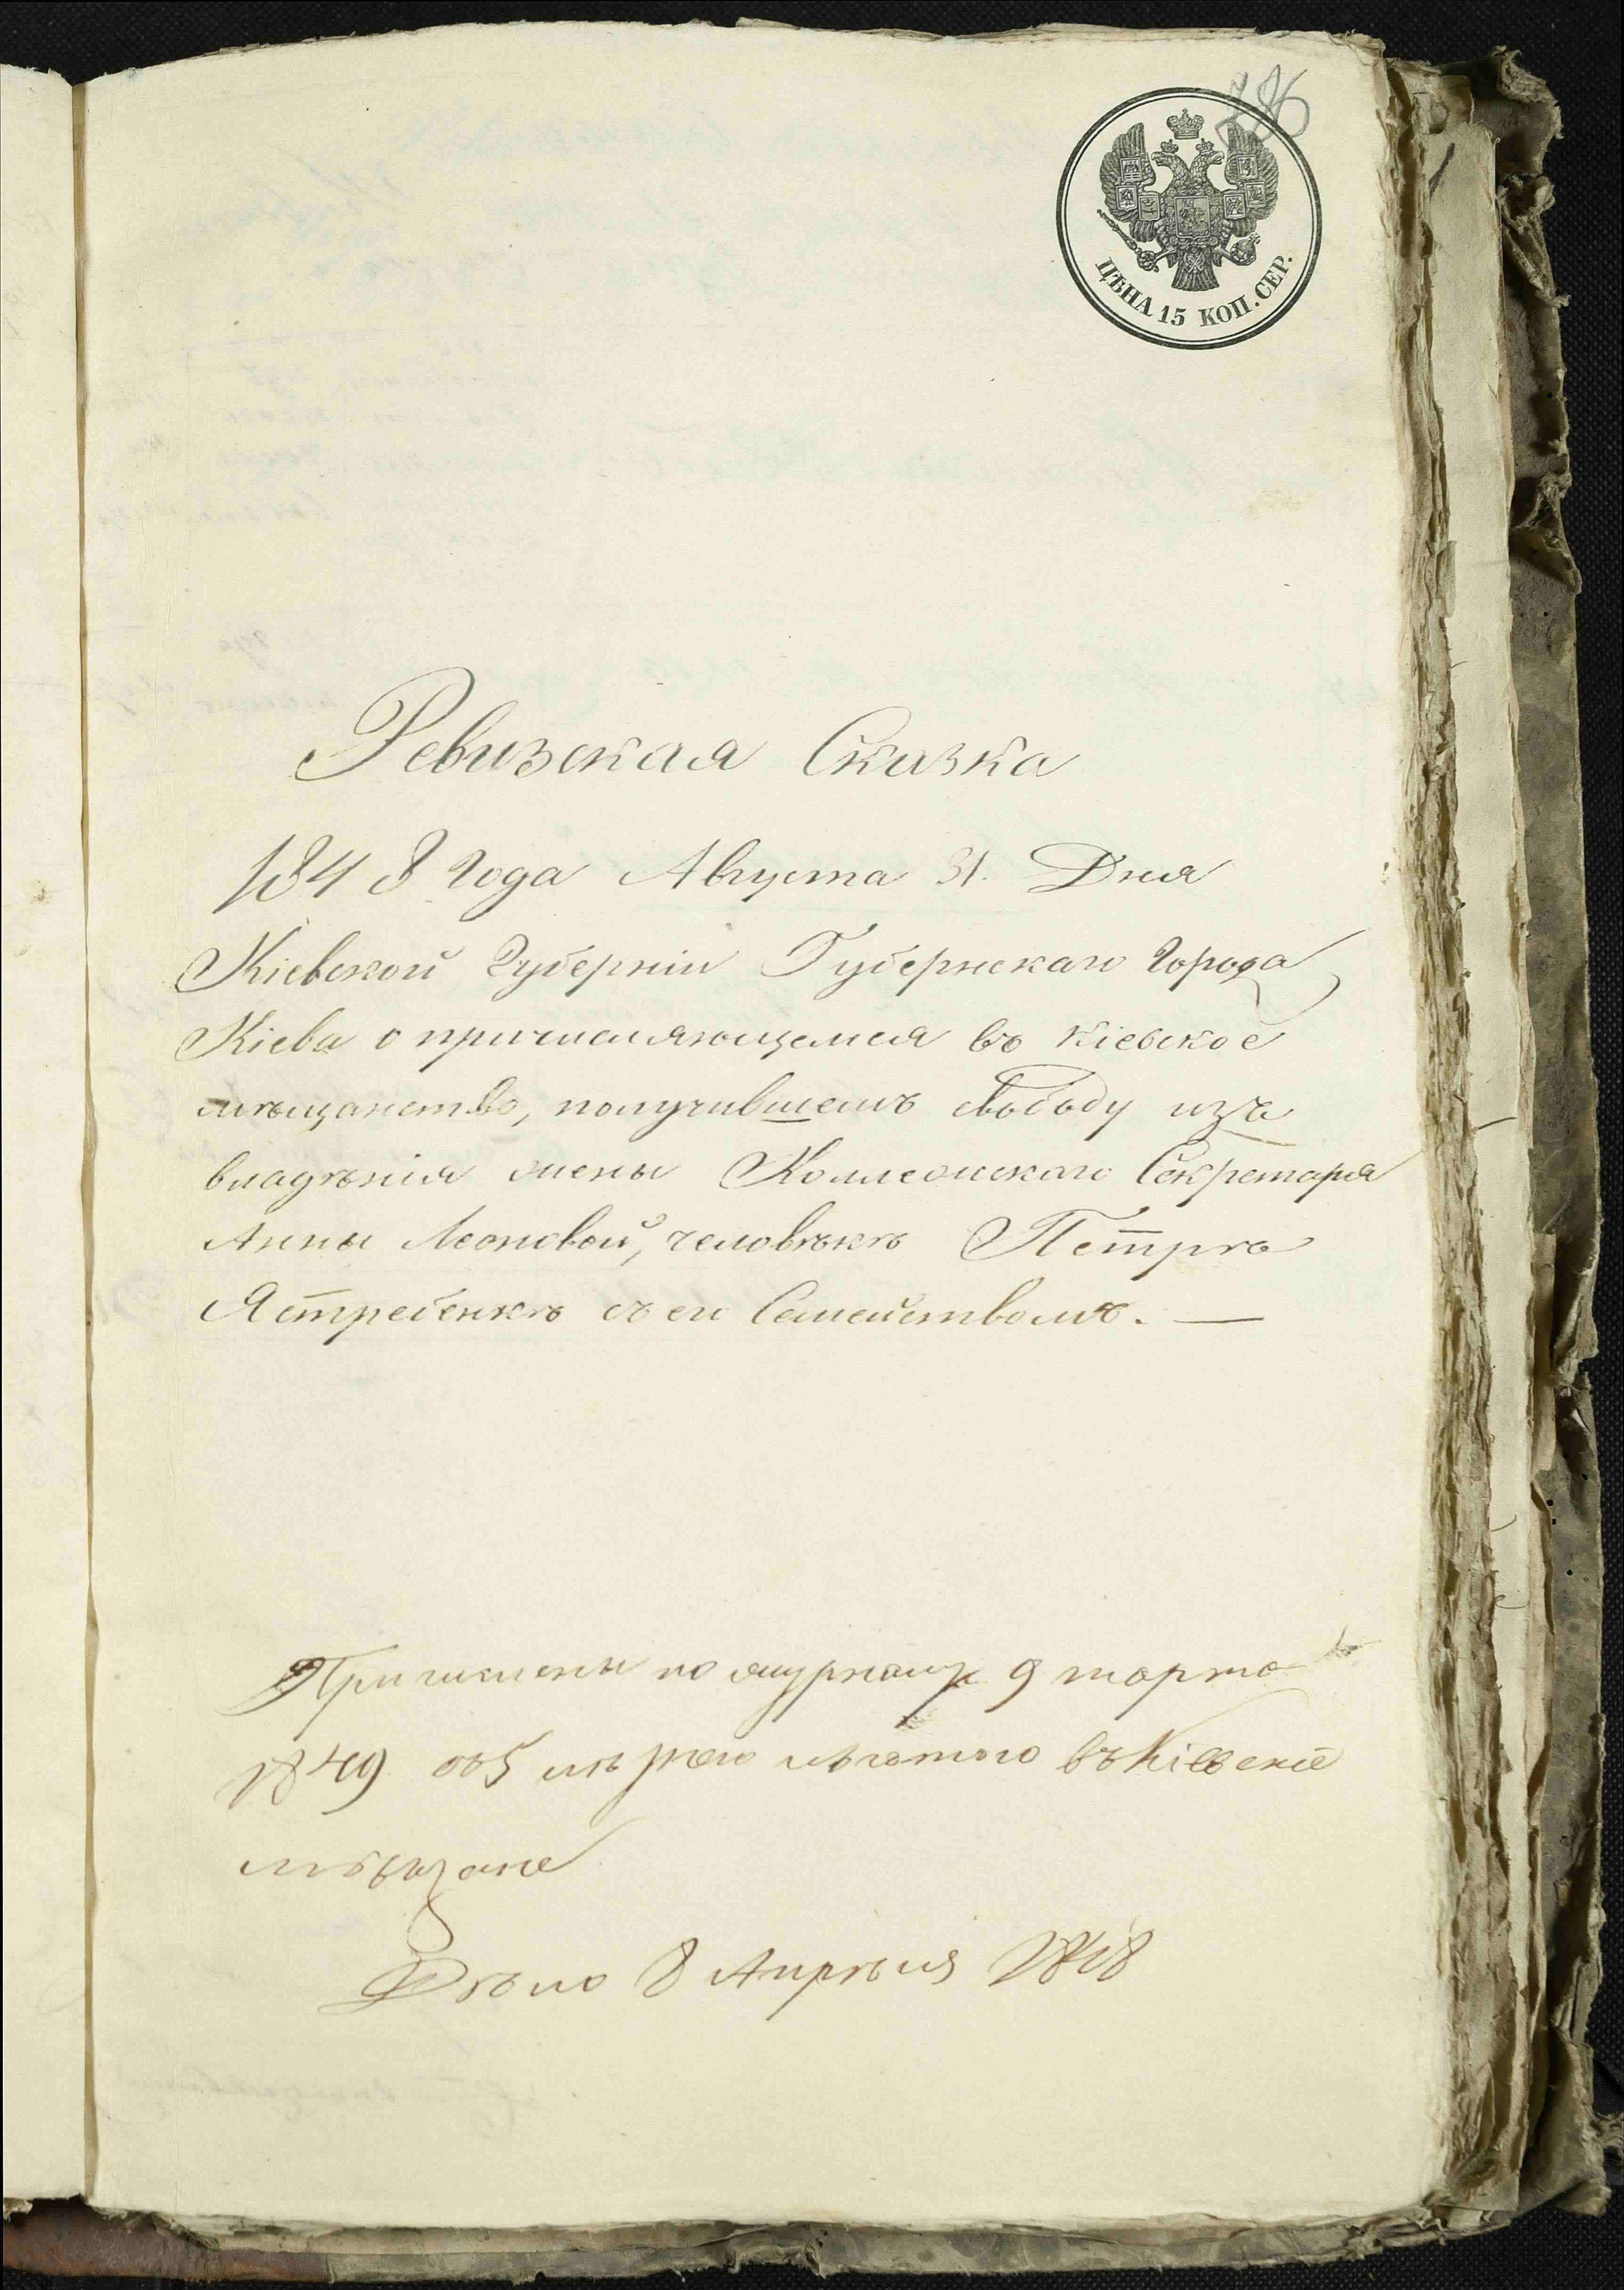 286
ЦѢНА 15 КОП. СЕР.
Ревизская Сказка
1848 Года Августа 31. Дня
Кіевской Губерніи Губернскаго Города
Кіева о причисляющемся въ Кіевское
мѣщанство, получившемъ свободу изъ
владѣнія жены Коллежскаго Секретаря
Анны Леоновой, человѣкѣ Петрѣ
Ястребенкѣ съ его Семействомъ. —
Причислены по журналу 9 марта
1849 въ Кіевскіе
мѣщане
Дѣло 8 Апрѣля 1848